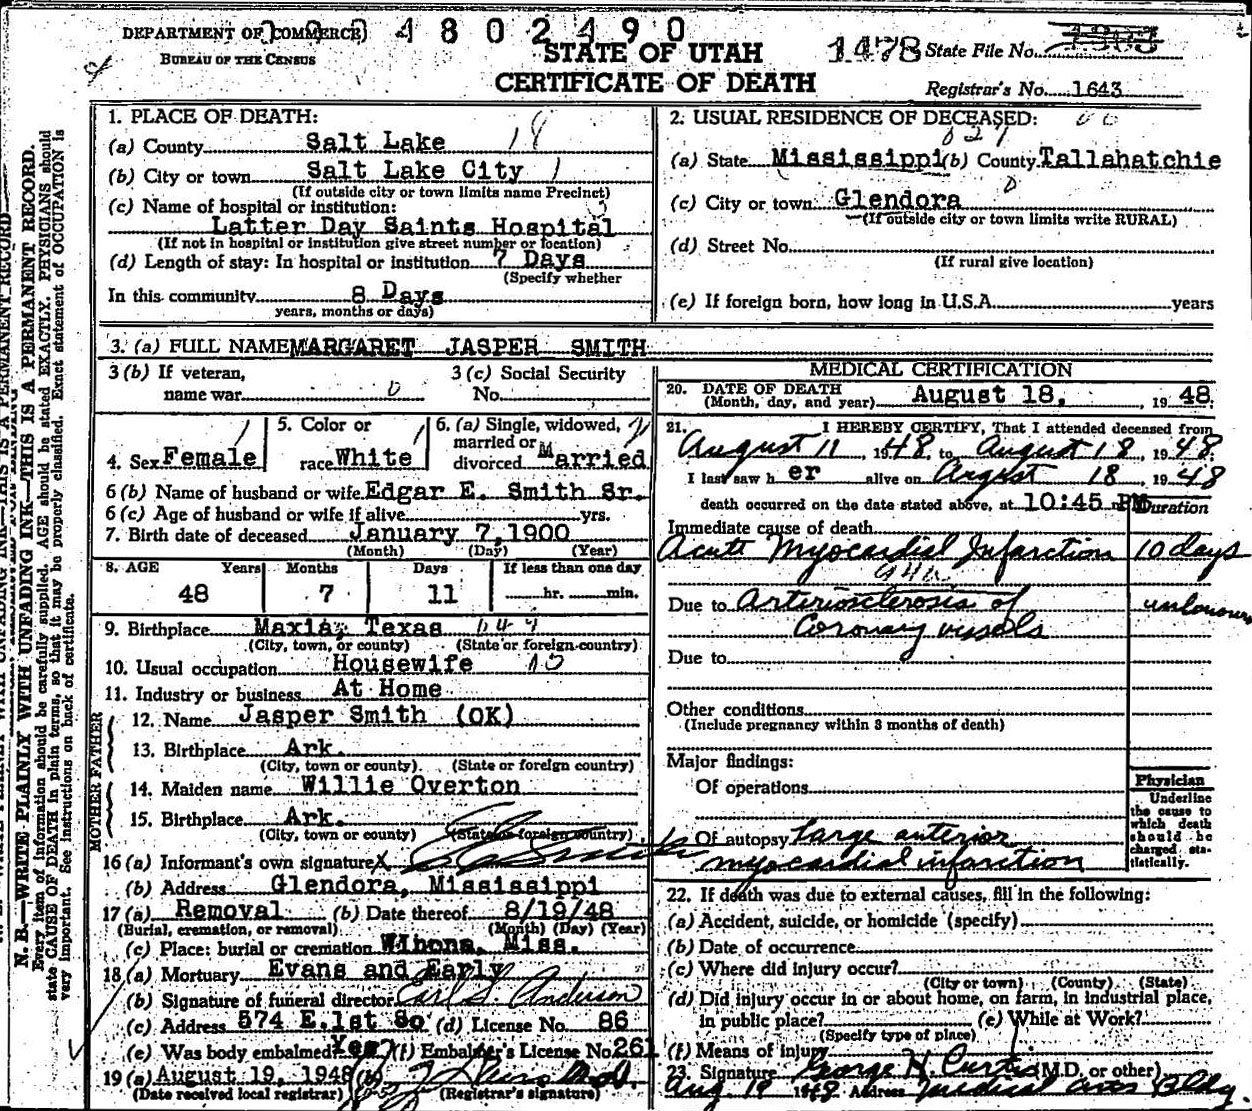 DEPARTMENT OF COMMERCE
BUREAU OF THE CENSUS
4802490
STATE OF UTAH
CERTIFICATE OF DEATH
1478 State File No.
Registrar's No. 1643
N. B.—WRITE PLAINLY WITH UNFADING INK—THIS IS A PERMANENT RECORD.
Every item of information should be carefully supplied. AGE should be stated EXACTLY. PHYSICIANS should
state CAUSE OF DEATH in plain terms, so that it may be properly classified. Exact statement of OCCUPATION is
very important. See instructions on back of certificate.
1. PLACE OF DEATH:
(a) County Salt Lake 18
(b) City or town Salt Lake City 1
(If outside city or town limits name Precinct)
(c) Name of hospital or institution:
Latter Day Saints Hospital
(If not in hospital or institution give street number or location)
(d) Length of stay: In hospital or institution 7 Days
(Specify whether
In this community 8 Days
years, months or days)
2. USUAL RESIDENCE OF DECEASED:
(a) State Mississippi (b) County Tallahatchie
(c) City or town Glendora
(If outside city or town limits write RURAL)
(d) Street No.
(If rural give location)
(e) If foreign born, how long in U.S.A. years
3. (a) FULL NAME MARGARET JASPER SMITH
3 (b) If veteran,
name war 0
3 (c) Social Security
No.
4. Sex Female
5. Color or
race White
6. (a) Single, widowed,
married or
divorced Married
6 (b) Name of husband or wife Edgar E. Smith Sr.
6 (c) Age of husband or wife if alive yrs.
7. Birth date of deceased January 7, 1900
(Month) (Day) (Year)
8. AGE Years Months Days If less than one day
48 7 11 hr. min.
9. Birthplace Maxia, Texas
(City, town, or county) (State or foreign country)
10. Usual occupation Housewife
11. Industry or business At Home
FATHER
12. Name Jasper Smith (OK)
13. Birthplace Ark.
(City, town or county) (State or foreign country)
MOTHER
14. Maiden name Willie Overton
15. Birthplace Ark.
(City, town or county) (State or foreign country)
16 (a) Informant's own signature X Smith
(b) Address Glendora, Mississippi
17 (a) Removal (b) Date thereof 8/19/48
(Burial, cremation, or removal) (Month) (Day) (Year)
(c) Place: burial or cremation Winona, Miss.
18 (a) Mortuary Evans and Early
(b) Signature of funeral director Earl S. Anderson
(c) Address 574 E.1st So (d) License No. 86
(e) Was body embalmed? Yes (f) Embalmer's License No. 261
19 (a) August 19, 1948 (b)
(Date received local registrar) (Registrar's signature)
MEDICAL CERTIFICATION
20. DATE OF DEATH
(Month, day, and year) August 18, , 19 48
21. I HEREBY CERTIFY, That I attended deceased from
August 11 , 1948, to August 18 , 1948;
I last saw h er alive on August 18 , 1948
death occurred on the date stated above, at 10:45 PM
Duration
Immediate cause of death
Acute Myocardial Infarction 10 days
Due to Arteriosclerosis of unknown
Coronary vessels
Due to
Other conditions
(Include pregnancy within 3 months of death)
Major findings:
Of operations
Of autopsy Large anterior
myocardial infarction
Physician
Underline
the cause to
which death
should be
charged sta-
tistically.
22. If death was due to external causes, fill in the following:
(a) Accident, suicide, or homicide (specify)
(b) Date of occurrence
(c) Where did injury occur?
(City or town) (County) (State)
(d) Did injury occur in or about home, on farm, in industrial place,
in public place? (e) While at Work?
(Specify type of place)
(f) Means of injury
23. Signature George N. Curtis (M.D. or other)
Aug. 19 1948 Address Medical Arts Bldg.